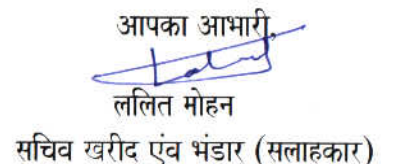 आपका आभारी,
ललित मोहन
सचिव खरीद एंव भंडार (सलाहकार)